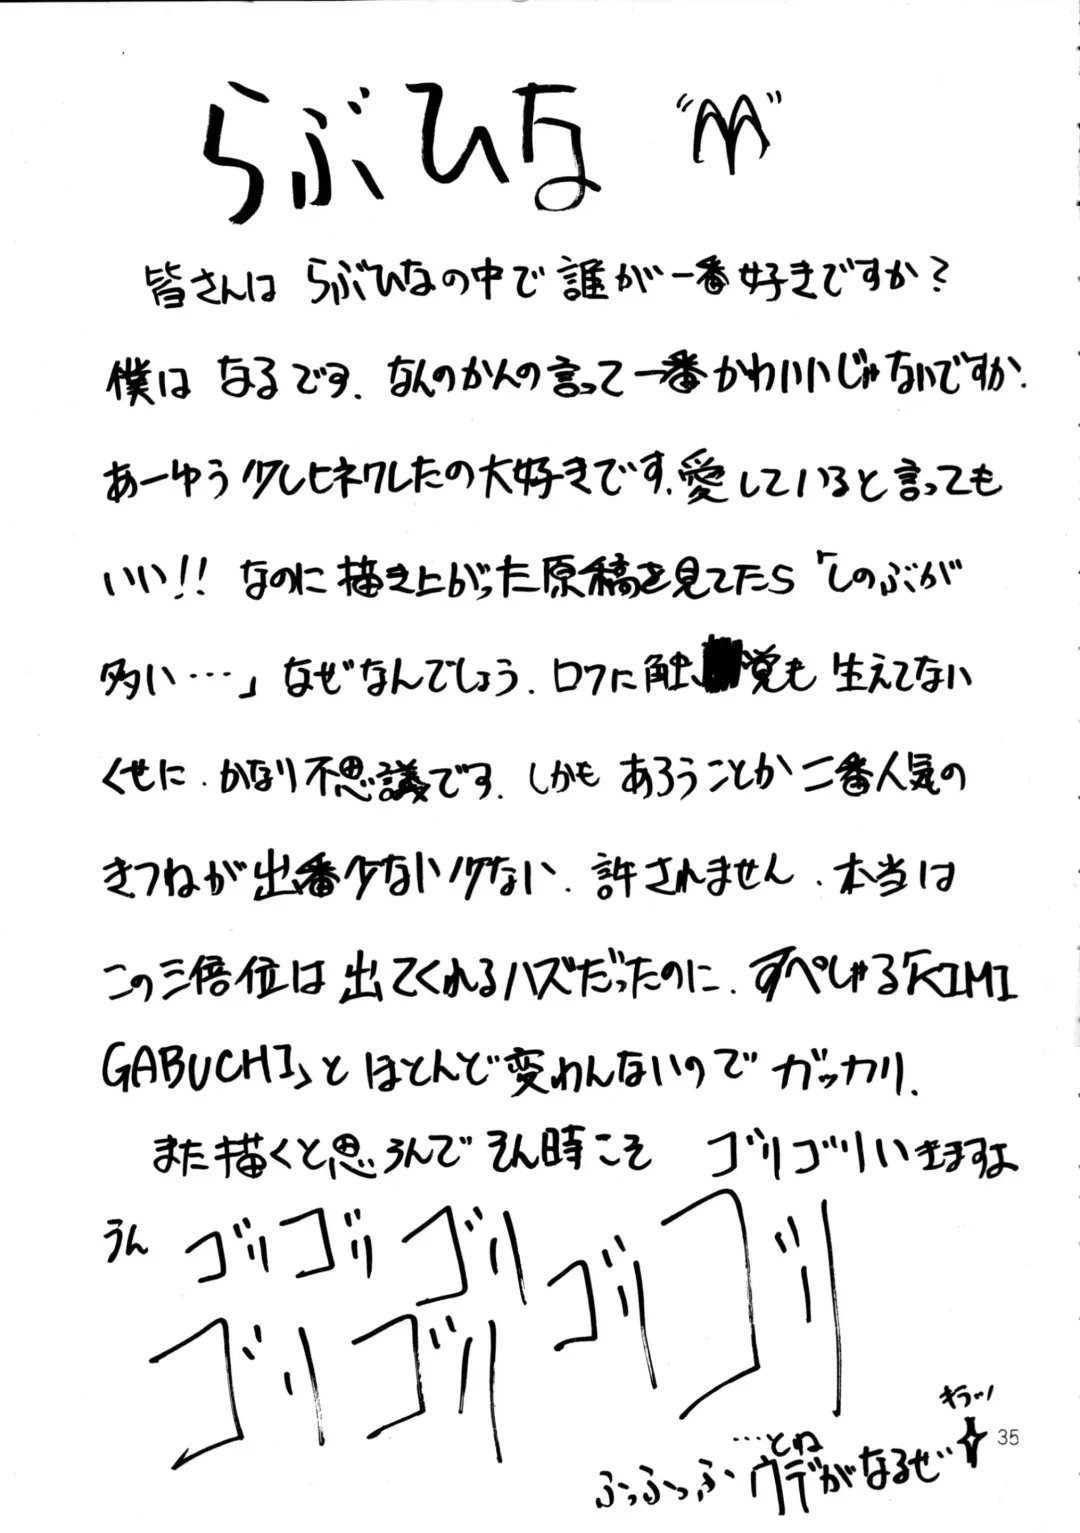 らぶひな
皆さんは らぶひなの中で誰が一番好きですか?
僕は なるです. なんのかんの言って一番かわいいじゃないですか.
あーゆう少しヒネクレたの大好きです. 愛していると言っても
いい!! なのに描き上がった原稿を見てたら「しのぶが
多い…」なぜなんでしょう. ロフに触覚も生えてない
くせに. かなり不思議です. しかも あろうことか二番人気の
きつねが出番少ない少ない. 許されません. 本当は
この三倍位は出てくれるハズだったのに. すぺしゃる「KIMI
GABUCHI」とほとんど変わんないのでガッカリ.
また描くと思うんでそん時こそ ゴリゴリいきますよ
うん ゴリゴリゴリゴリゴリ
ゴリゴリ
…とね
ふっふっふ ウデがなるぜ
キラッ
35